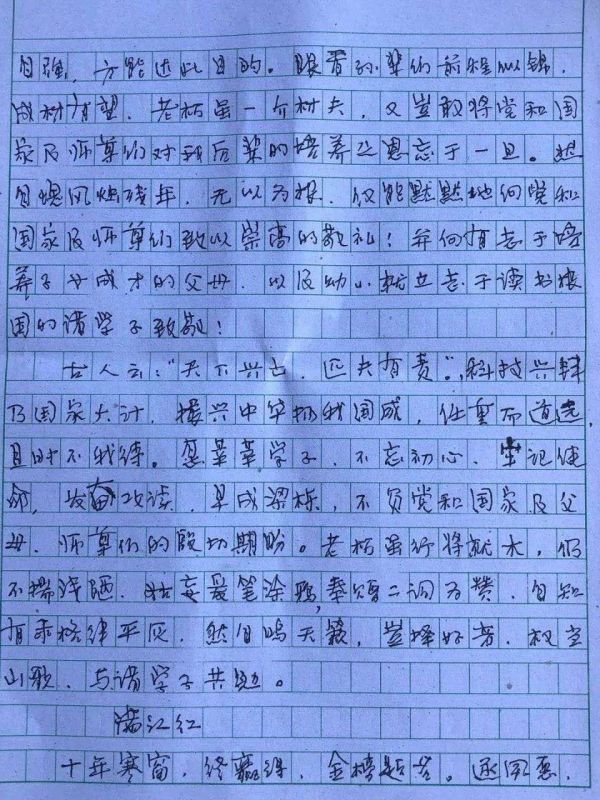 自强，方能达此目的。眼看孙辈们前程似锦，
成材有望，老朽虽一介村夫，又岂敢将党和国
家及师尊们对我后辈的培养之恩忘于一旦。想
自愧风烛残年，无以为报，仅能默默地向党和
国家及师尊们致以崇高的敬礼！并向有志于培
养子女成才的父母，以及幼小就立志于读书报
国的诸学子致敬！
古人云："天下兴亡，匹夫有责"，科技兴
乃国家大计，振兴中华 我国威，任重而道远，
且时不我待。愿莘莘学子，不忘初心，牢记使
命，发奋攻读，早成梁栋，不负党和国家及父
母、师尊们的殷切期盼。老朽虽行将就木，仍
不揣浅陋，妄 笔涂鸦，奉 二词为赞，自知
有乖格律平仄，然自鸣天籁，岂择好音，权当
山歌，与诸学子共勉。
满江红
十年寒窗，终赢得，金榜题名。逐风恶，